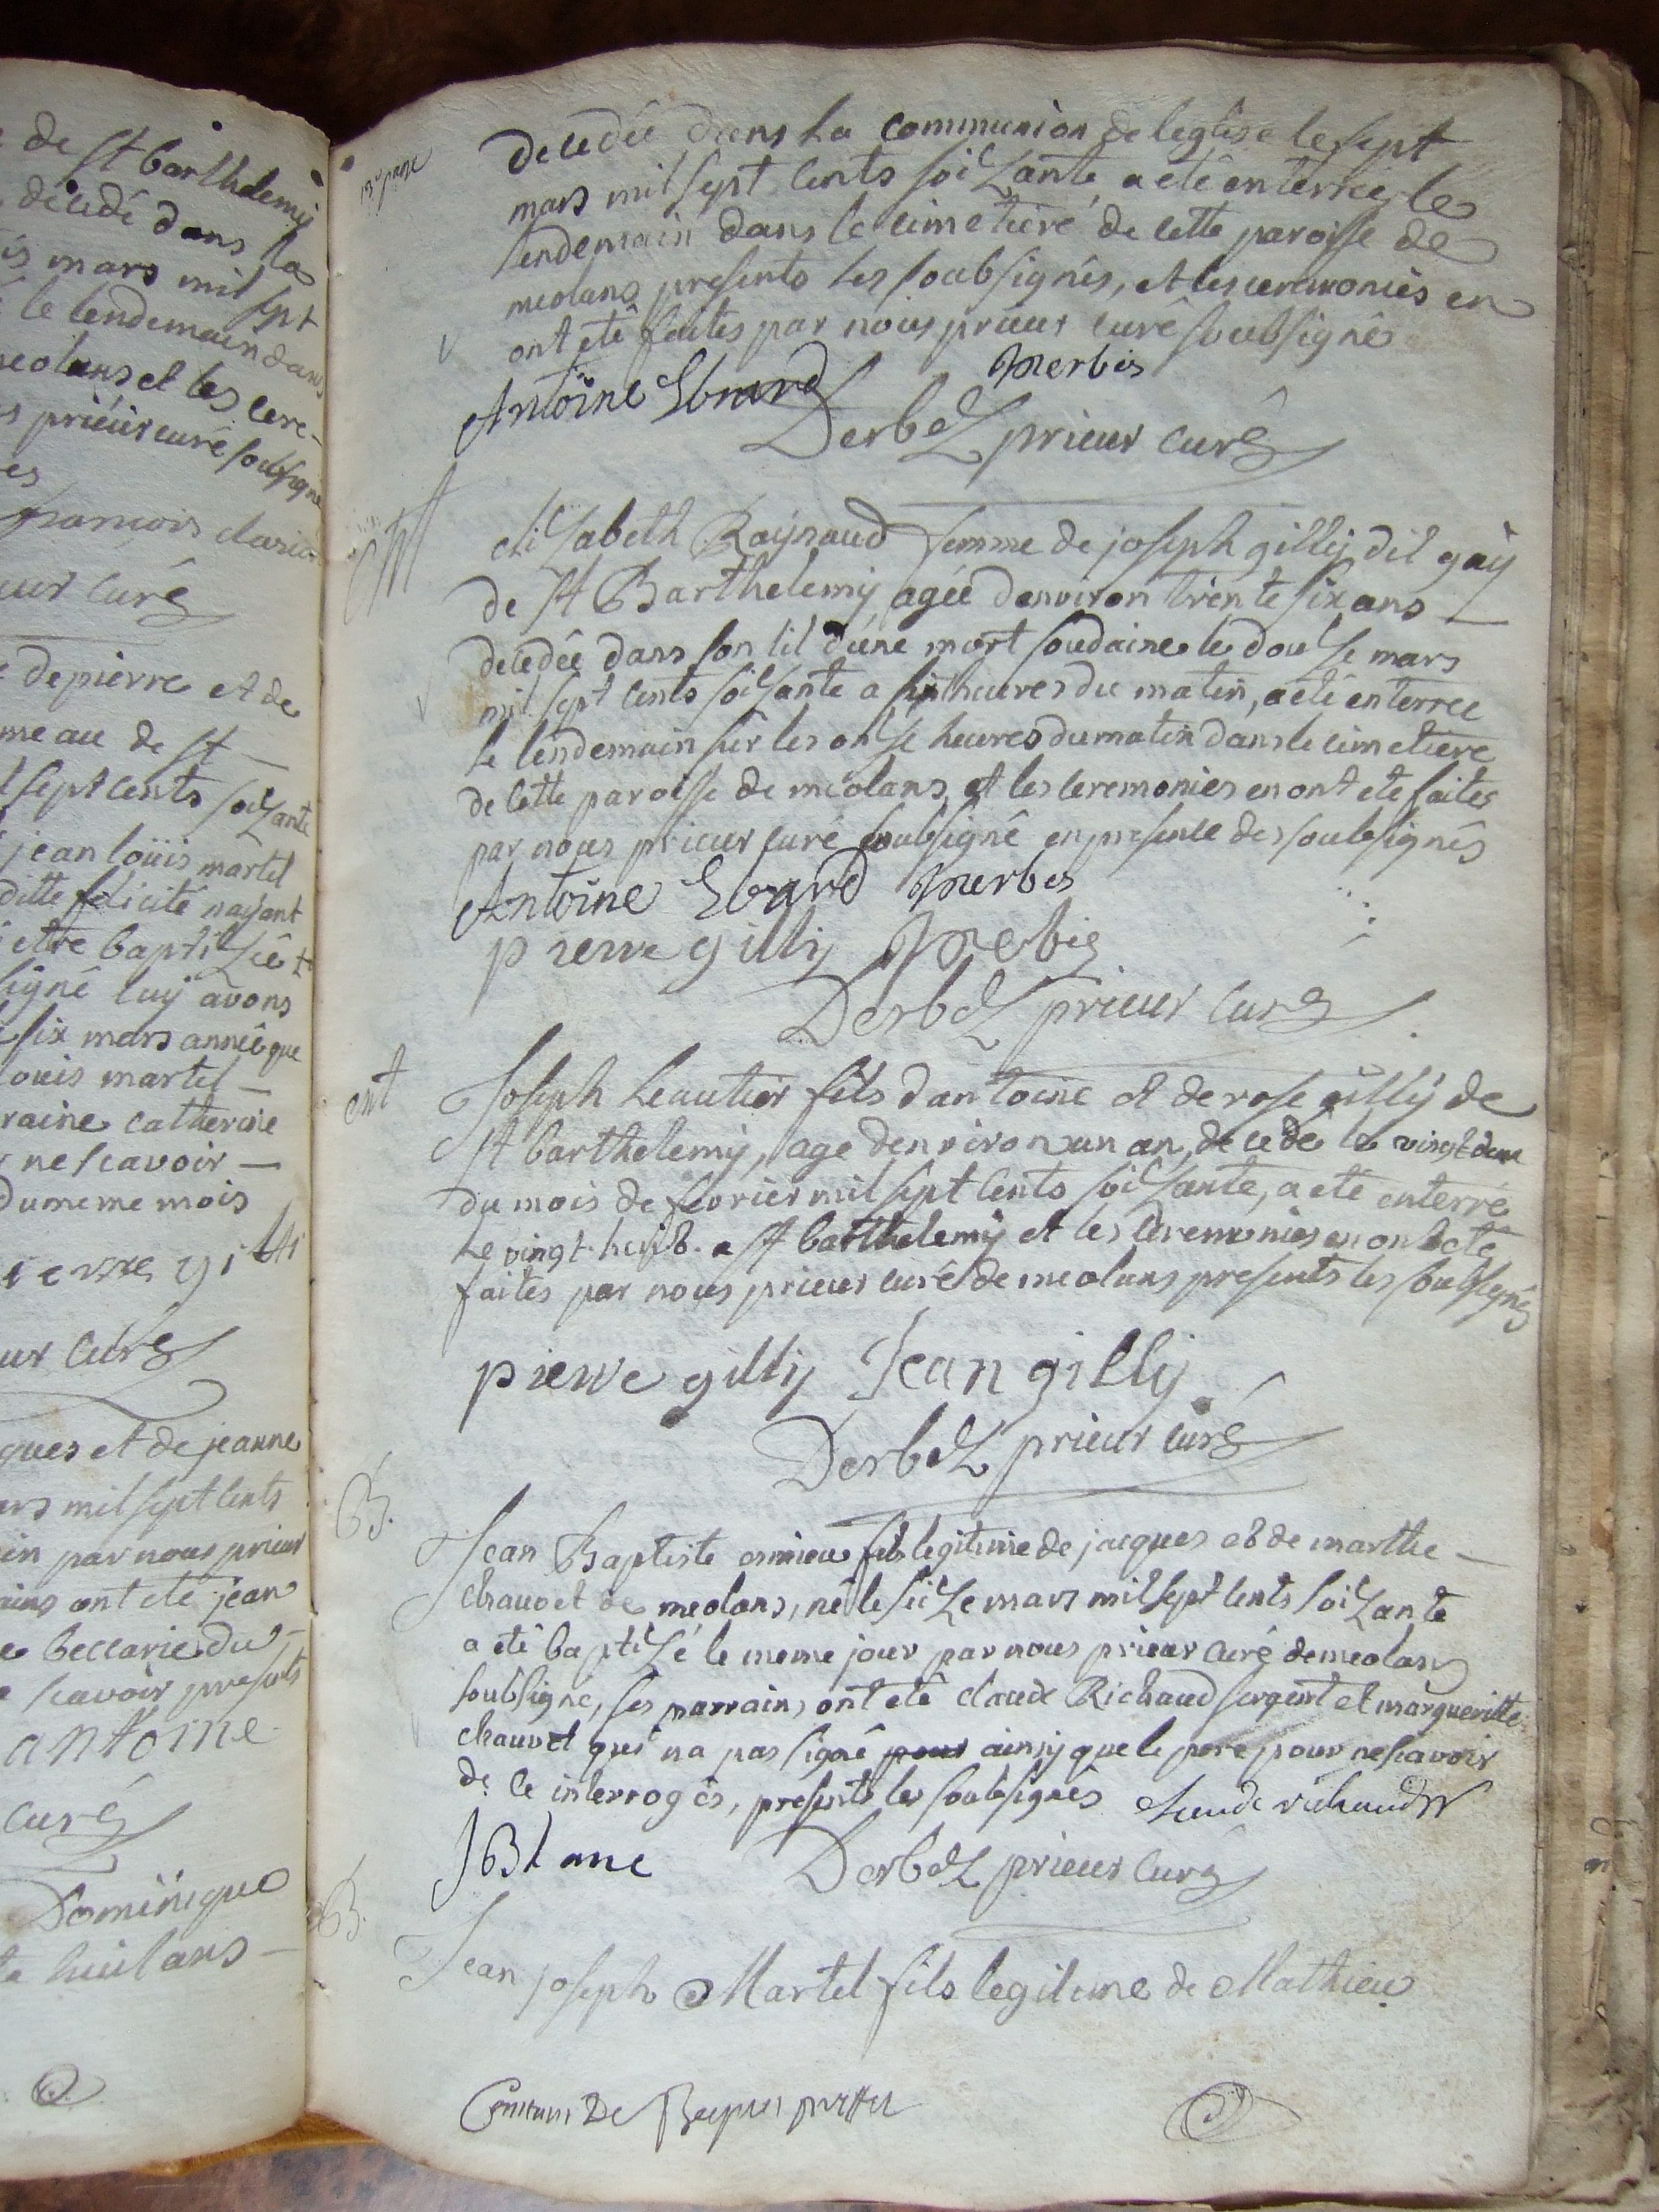 de St barthelemy
decedé dans la
mars mil sept
le lendemain dans
meolans et les cere-
prieur curé soubsigné
es
francois clari
eur curé
de pierre et de
meau de St
sept cents soizante
jean loüis martel
ditte felicité nayant
etre baptizée
signé luy avons
six mars année que
louis martel
raine catherine
ne scavoir
du meme mois
pierre gilli
ur curé
ques et de jeanne
ars mil sept cents
in par nous prieur
ains ont eté jean
beccarie du
scavoir presents
antoine
curé
Dominique
huit ans
13e page
decedée dans La communion de leglise le sept
mars mil sept cents soizante, a eté enterrée le
lendemain dans le cimetiere de cette paroisse de
meolans presents les soubsignés, et les ceremonies en
ont eté faites par nous prieur curé soubsigné
Antoine Ebrard Merbis
Derbez prieur curé
elizabeth Raynaud femme de joseph gilly dit gay
de St Barthelemy agée denviron trente six ans
decedée dans son lit d'une mort soudaine le douze mars
mil sept cents soizante a six heures du matin, a eté enterree
le lendemain sur les onze heures du matin dans le cimetiere
de cette paroisse de meolans, et les ceremonies en ont ete faites
par nous prieur curé soubsigné en presence des soubsignés
Antoine Ebrard Merbes
pierre gilly Merbis
Derbez prieur curé
ent
Joseph Leautier fils dantoine et de rose gilly de
St barthelemy, age denviron un an, decedé le vingt deux
du mois de fevrier mil sept cents soizante, a eté enterré
Le vingt. huit. a St barthelemy et les ceremonies en ont eté
faites par nous prieur curé de meolans presents les soubsignés
pierre gilly Jean gilly
Derbez prieur curé
B.
Jean Baptiste fils legitime de jacques et de marthe
chauvet de meolans, né le seize mars mil sept cents soizante
a eté baptizé le meme jour par nous prieur curé de meolans
soubsigné, ses parrains ont eté claude Richaud sergent et margueritte
chauvet qui na pas signé pour ainsy que le pere pour ne scavoir
de ce interrogés, presents les soubsignés claude richaud
J Blanc Derbez prieur curé
B.
Jean joseph Martel fils legitime de Mathieu